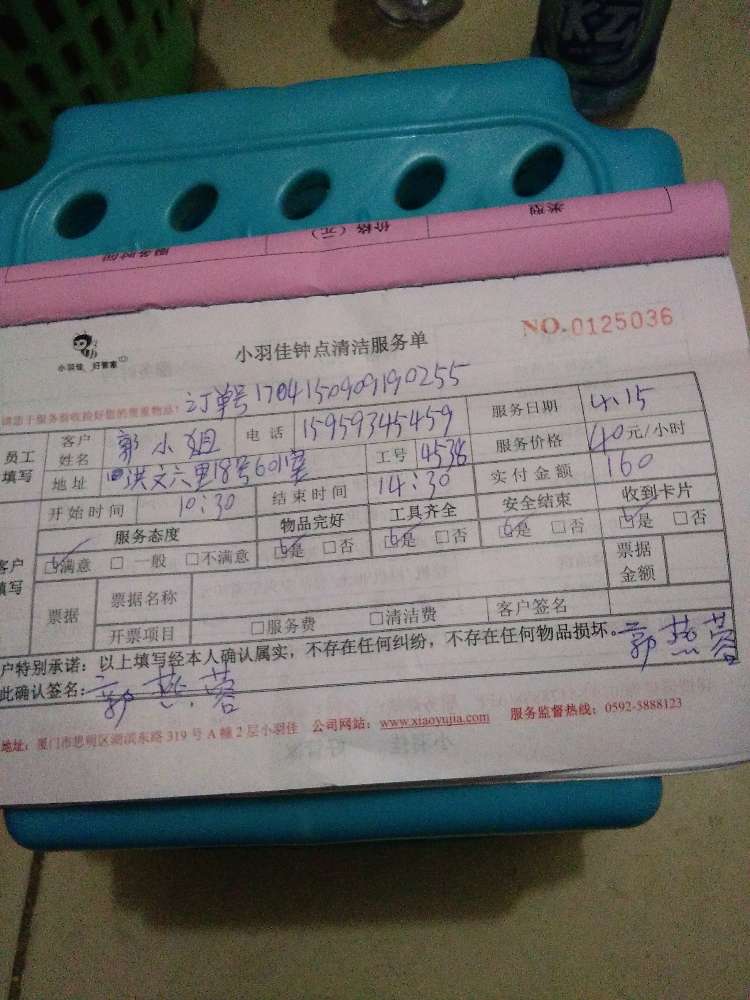 类型
价格（元）
服务时间
小羽佳 好管家
小羽佳钟点清洁服务单
NO.0125036
请您于服务前收捡好您的贵重物品！
订单号1704150909190255
员工填写
客户姓名 郭小姐 电话 15959345459 服务日期 4.15
地址 洪文六里18号601室 工号 4536 服务价格 40元/小时
开始时间 10:30 结束时间 14:30 实付金额 160
服务态度 物品完好 工具齐全 安全结束 收到卡片
客户填写
☑满意 □一般 □不满意 ☑是 □否 ☑是 □否 ☑是 □否 ☑是 □否
票据 票据名称 票据金额
开票项目 □服务费 □清洁费 客户签名
户特别承诺：以上填写经本人确认属实，不存在任何纠纷，不存在任何物品损坏。
郭燕蓉
此确认签名：郭燕蓉
地址：厦门市思明区湖滨东路319号A幢2层小羽佳 公司网站：www.xiaoyujia.com 服务监督热线：0592-5888123